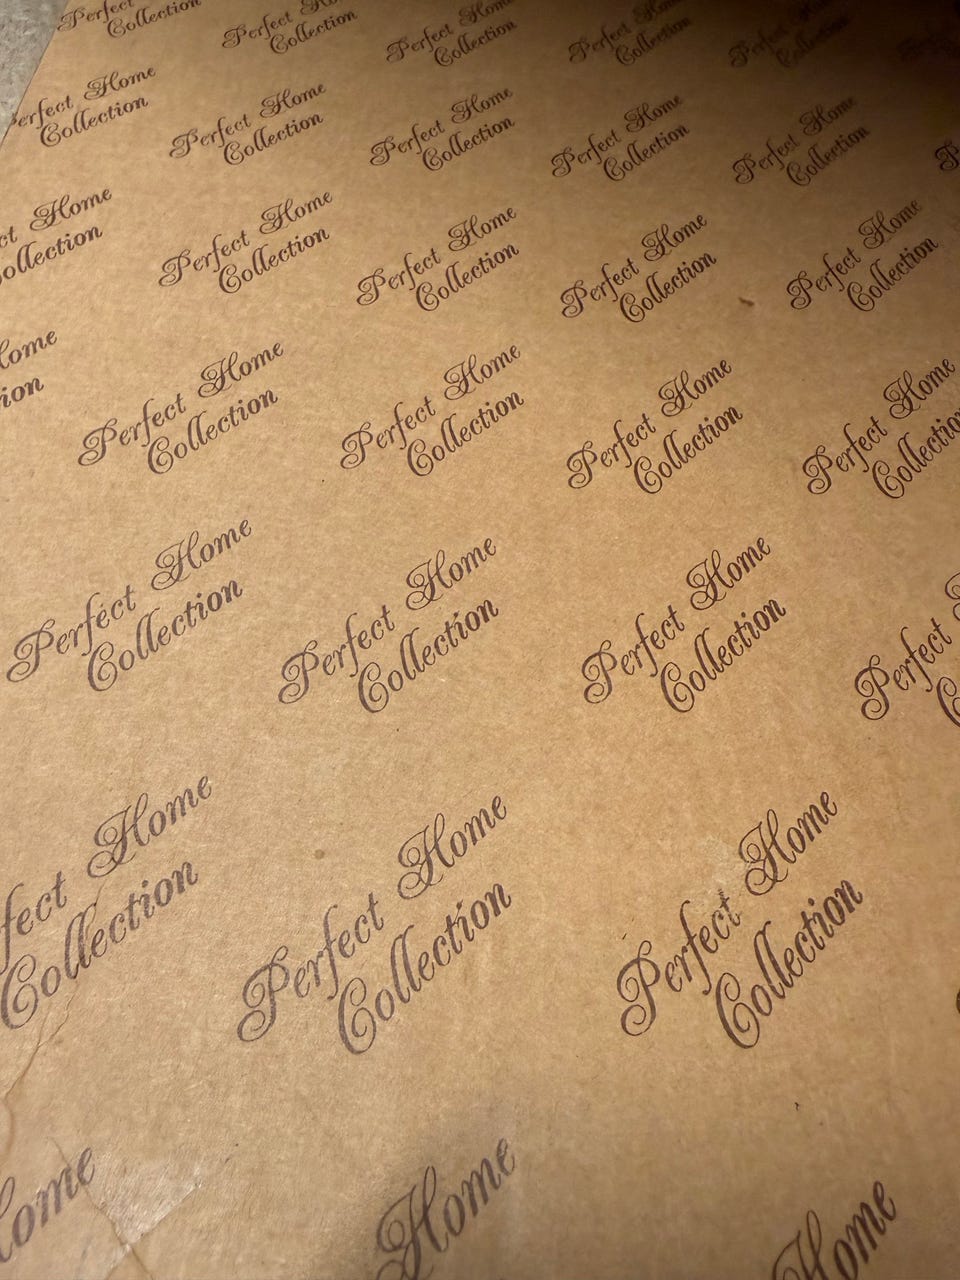 Perfect
Collection
Perfect Home
Collection
Perfect Home
Collection
Perfect Home
Collection
Perfect Home
Collection
Perfect Home
Collection
Perfect Home
Collection
Perfect Home
Collection
Perfect Home
Collection
Perfect Home
Collection
Home
Collection
Perfect Home
Collection
Perfect Home
Collection
Perfect Home
Collection
Perfect Home
Collection
Perfect Home
Collection
Perfect Home
Collection
Perfect Home
Collection
Perfect Home
Collection
Perfect Home
Collection
Perfect Home
Collection
Perfect Home
Collection
Perfect
Home
Collection
Perfect Home
Collection
Perfect Home
Collection
Home
Home
Home